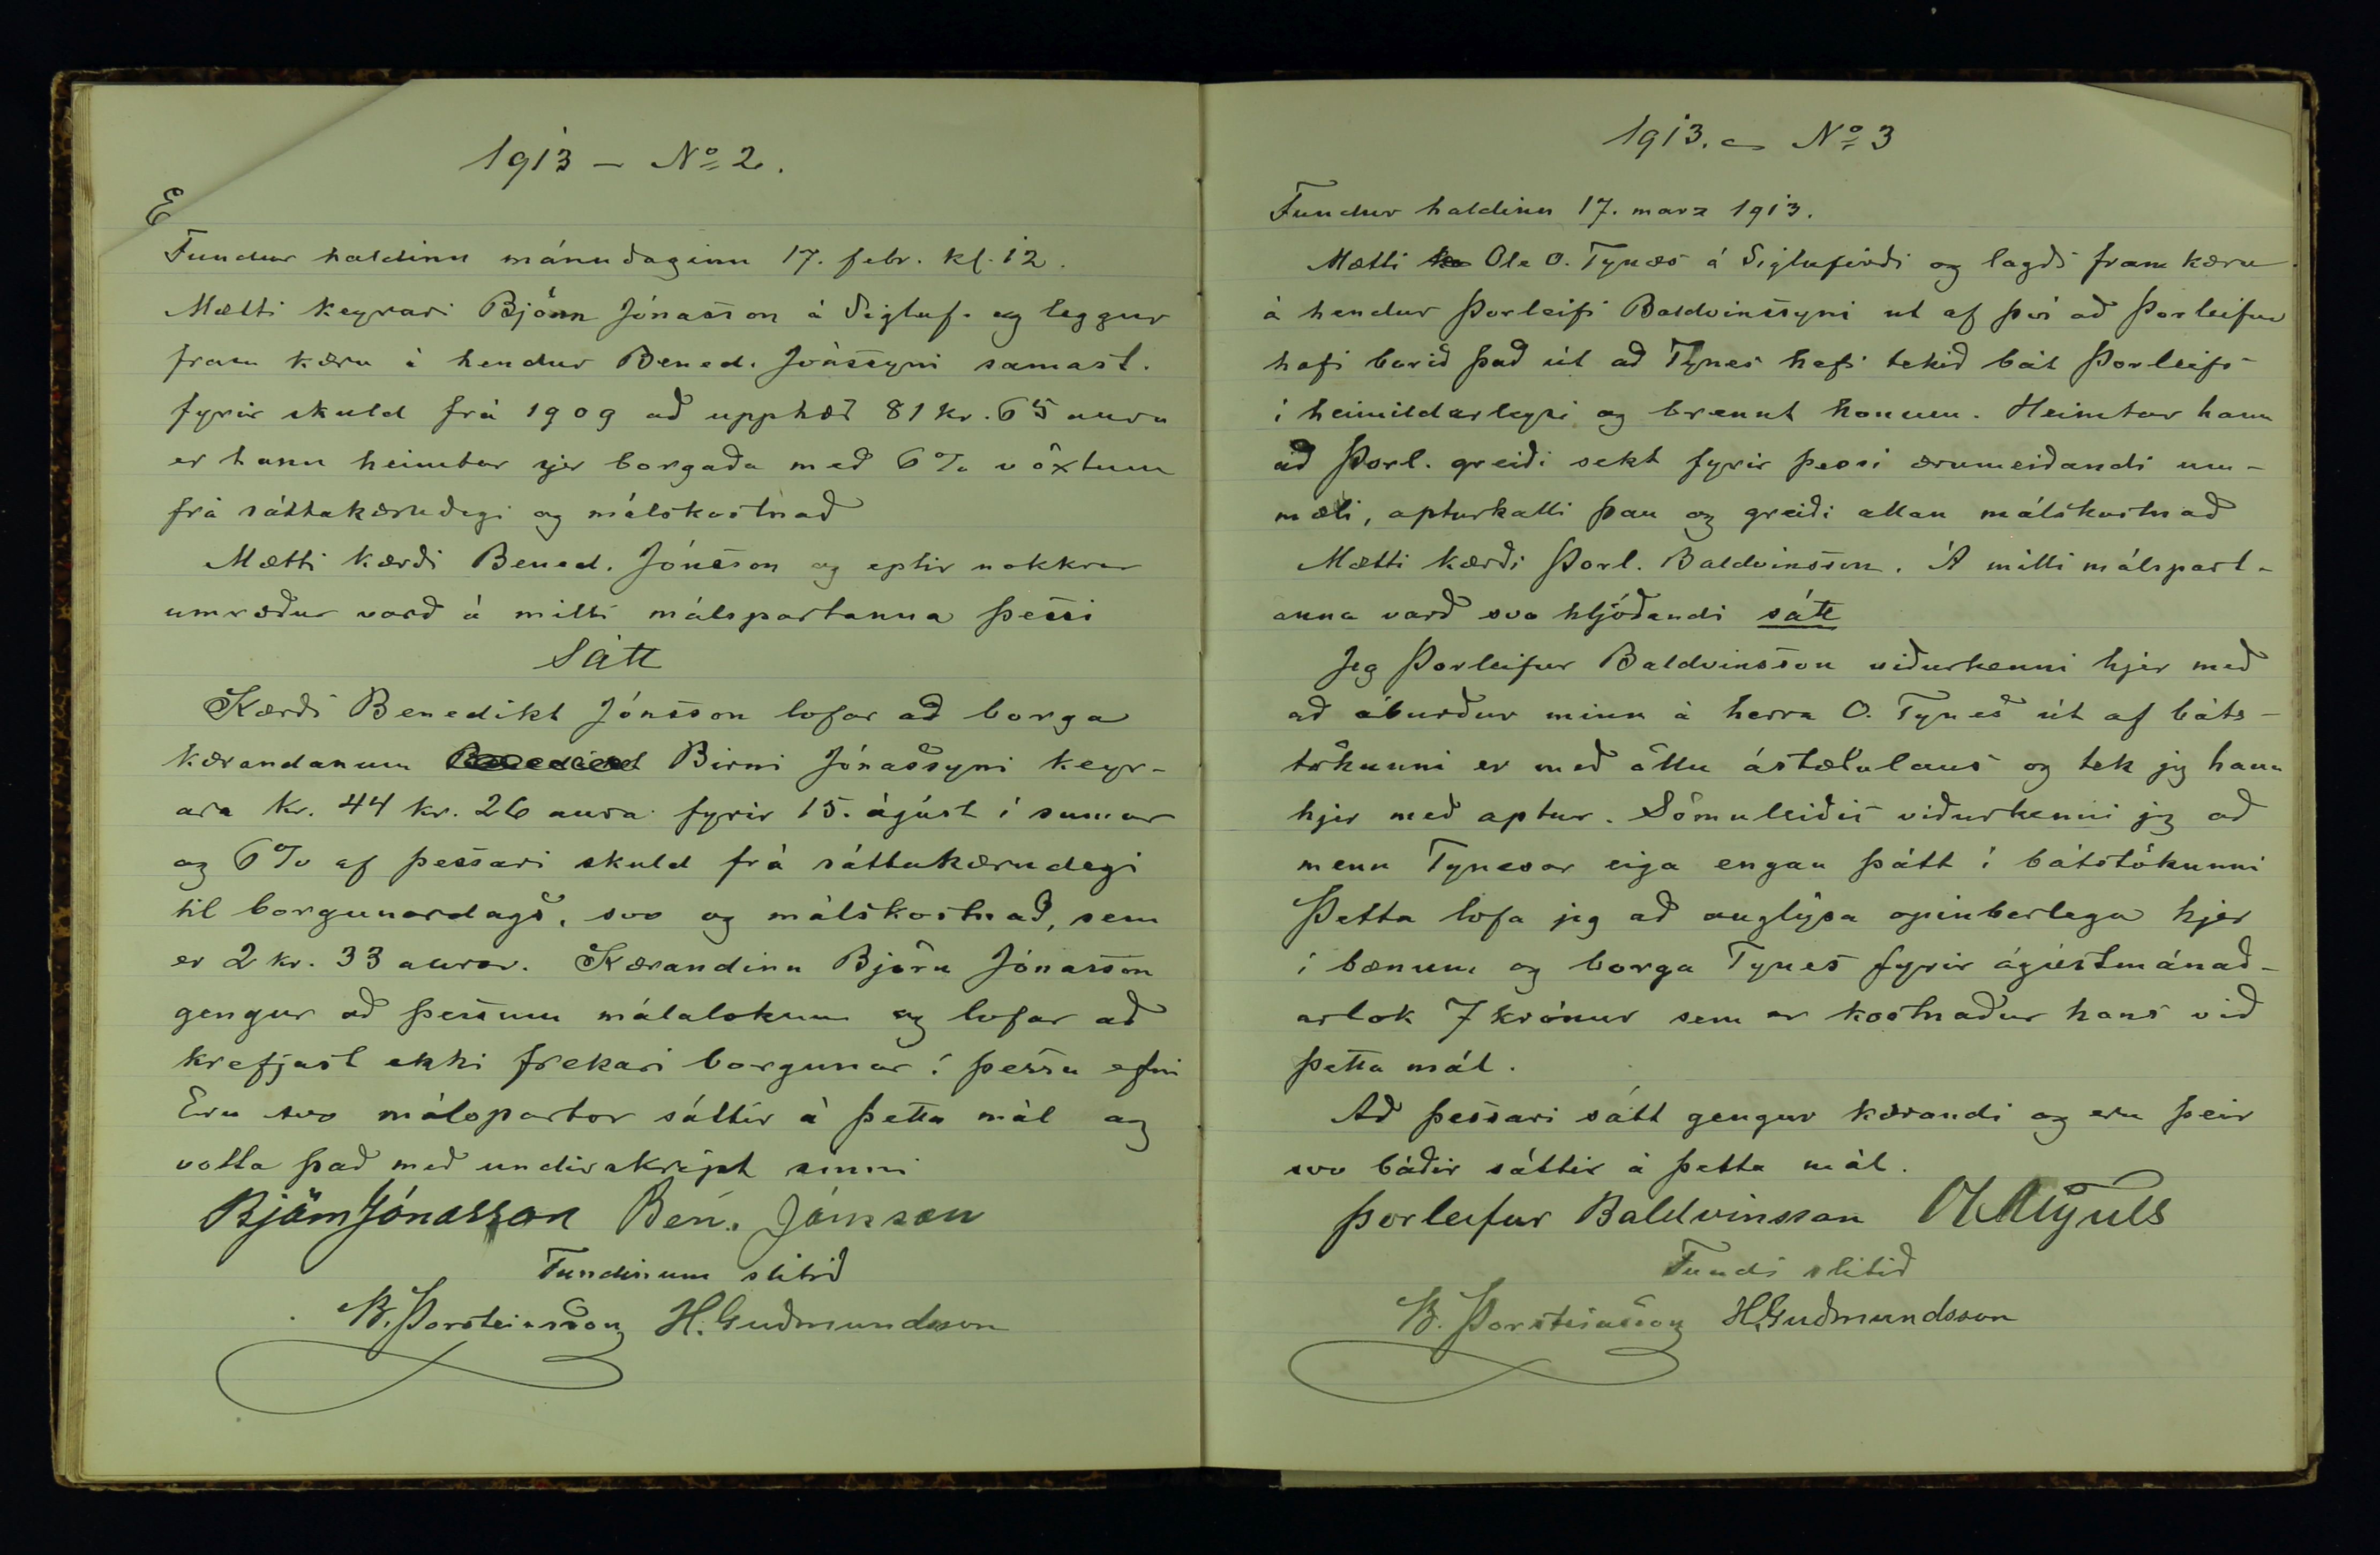 1913 – No 2.
E
Fundur haldinn mánudaginn 17. febr. kl. 12.
Mætti keyrari Björn Jónasson á Sigluf. og leggur
fram kæru á hendur Bened. Jónssyni samast.
fyrir skuld frá 1909 að upphæð 81 kr. 65 aura
er hann heimtar sjer borgaða með 6% vöxtum
frá sáttakærudegi og málskostnað
Mætti kærði Bened. Jónsson og eptir nokkrar
umræður varð á milli málspartanna þessi
Sátt
Kærði Benedikt Jónsson lofar að borga
kærandanum Birni Jónassyni keyr-
ara kr. 44 kr. 26 aura fyrir 15. ágúst í sumar
og 6% af þessari skuld frá sáttakærudegi
til borgunardags, svo og málskostnað, sem
er 2 kr. 33 aurar. Kærandinn Björn Jónasson
gengur að þessum málalokum og lofar að
krefjast ekki frekari borgunar í þessu efni
Eru svo málspartar sáttir á þetta mál og
votta það með undirskript sinni
Björn Jónasson Ben. Jónsson
Fundinum slitið
B. Þorsteinsson H. Guðmundsson
1913. – No 3
Fundur haldinn 17. marz 1913.
Mætti Ole O. Tynæs á Siglufirði og lagði fram kæru
á hendur Þorleifi Baldvinssyni út af því að Þorleifur
hafi borið það út að Tynes hafi tekið bát Þorleifs
í heimildarleysi og brennt honum. Heimtar hann
að Þorl. greiði sekt fyrir þessi ærumeiðandi um-
mæli, apturkalli þau og greiði allan málskostnað
Mætti kærði Þorl. Baldvinsson. Á milli málspart-
anna varð svo hljóðandi sátt
Jeg Þorleifur Baldvinsson viðurkenni hjer með
að áburður minn á herra O. Tynes út af báts-
tökunni er með öllu ástæðulaus og tek jeg hann
hjer með aptur. Sömuleiðis viðurkenni jeg að
menn Tynesar eiga engan þátt í bátstökunni
Þetta lofa jeg að auglýsa opinberlega hjer
í bænum og borga Tynes fyrir ágústmánað-
arlok 7 krónur sem er kostnaður hans við
þetta mál.
Að þessari sátt gengur kærandi og eru þeir
svo báðir sáttir á þetta mál.
Þorleifur Baldvinsson
Fundi slitið
B. Þorsteinsson H. Guðmundsson